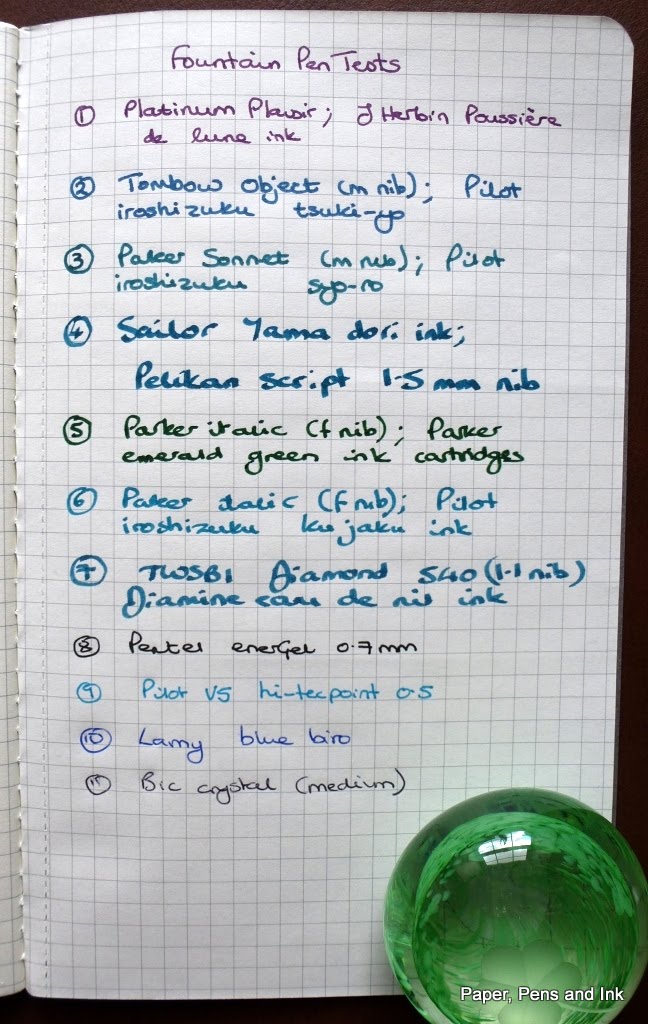 Fountain Pen Tests
① Platinum Plaisir; J Herbin Poussière
de lune ink
② Tombow Object (m nib); Pilot
iroshizuku tsuki-yo
③ Parker Sonnet (m nib); Pilot
iroshizuku syo-ro
④ Sailor Yama dori ink;
Pelikan script 1.5 mm nib
⑤ Parker italic (f nib); Parker
emerald green ink cartridges
⑥ Parker italic (f nib); Pilot
iroshizuku kujaku ink
⑦ TWSBI Diamond 540 (1.1 nib)
Diamine eau de nil ink
⑧ Pentel enerGel 0.7mm
⑨ Pilot V5 hi-tecpoint 0.5
⑩ Lamy blue biro
⑪ Bic crystal (medium)
Paper, Pens and Ink